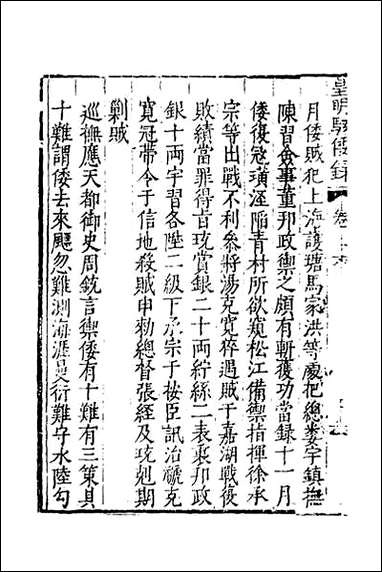 皇明馭倭錄 卷之六
月倭賊犯上海護塘馬家洪等處把總婁宇鎮撫
陳習僉事董邦政禦之頗有斬獲功當録十一月
倭復冦璜涇陥青村所欲窺松江備禦指揮徐承
宗等出戰不利叅將湯克寛猝遇賊于嘉湖戰復
敗績當罪得㫖珫賞銀二十兩紵絲二表裏邦政
銀十兩宇習各陞二級下承宗于按臣訊治褫克
寛冠帶令于信地殺賊申勑總督張經及珫剋期
剿賊
巡撫應天都御史周珫言禦倭有十難有三策其
十難謂倭去來飈忽難測海涯曼衍難守水陸勾